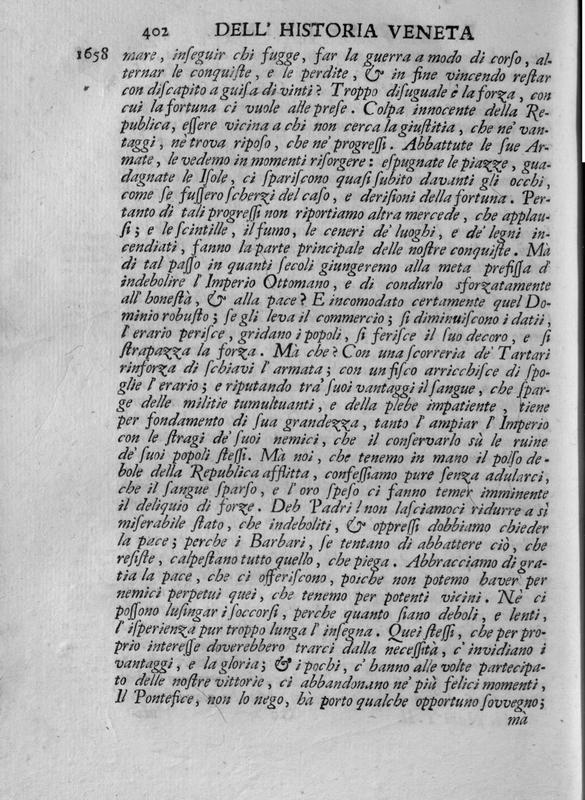 402 DELL' HISTORIA VENETA
1658 mare, inſeguir chi fugge, far la guerra a modo di corſo, al-
ternar le conquiſte, e le perdite, & in fine vincendo reſtar
con diſcapito a guiſa di vinti? Troppo diſuguale è la forza, con
cui la fortuna ci vuole alle preſe. Colpa innocente della Re-
publica, eſſere vicina a chi non cerca la giuſtitia, che ne' van-
taggi, nè trova ripoſo, che ne' progreſſi. Abbattute le ſue Ar-
mate, le vedemo in momenti riſorgere: eſpugnate le piazze, gua-
dagnate le Iſole, ci ſpariſcono quaſi ſubito davanti gli occhi,
come ſe fuſſero ſcherzi del caſo, e deriſioni della fortuna. Per-
tanto di tali progreſſi non riportiamo altra mercede, che applau-
ſi; e le ſcintille, il fumo, le ceneri de' luoghi, e de' legni in-
cendiati, fanno la parte principale delle noſtre conquiſte. Mà
di tal paſſo in quanti ſecoli giungeremo alla meta prefiſſa d'
indebolire l' Imperio Ottomano, e di condurlo sforzatamente
all' honeſtà, & alla pace? E incomodato certamente quel Do-
minio robuſto; ſe gli leva il commercio; ſi diminuiſcono i datii,
l' erario periſce, gridano i popoli, ſi feriſce il ſuo decoro, e ſi
ſtrapazza la forza. Mà che? Con una ſcorreria de' Tartari
rinforza di ſchiavi l' armata; con un fiſco arricchiſce di ſpo-
glie l' erario; e riputando trà ſuoi vantaggi il ſangue, che ſpar-
ge delle militie tumultuanti, e della plebe impatiente, tiene
per fondamento di ſua grandezza, tanto l' ampiar l' Imperio
con le ſtragi de' ſuoi nemici, che il conſervarlo sù le ruine
de' ſuoi popoli ſteſſi. Mà noi, che tenemo in mano il polſo de-
bole della Republica afflitta, confeſſiamo pure ſenza adularci,
che il ſangue ſparſo, e l' oro ſpeſo ci fanno temer imminente
il deliquio di forze. Deh Padri! non laſciamoci ridurre a sì
miſerabile ſtato, che indeboliti, & oppreſſi dobbiamo chieder
la pace; perche i Barbari, ſe tentano di abbattere ciò, che
reſiſte, calpeſtano tutto quello, che piega. Abbracciamo di gra-
tia la pace, che ci offeriſcono, poiche non potemo haver per
nemici perpetui quei, che tenemo per potenti vicini. Nè ci
poſſono luſingar i ſoccorſi, perche quanto ſiano deboli, e lenti,
l' iſperienza pur troppo lunga l' inſegna. Quei ſteſſi, che per pro-
prio intereſſe doverebbero trarci dalla neceſſità, c' invidiano i
vantaggi, e la gloria; & i pochi, c' hanno alle volte partecipa-
to delle noſtre vittorie, ci abbandonano ne' più felici momenti,
Il Pontefice, non lo nego, hà porto qualche opportuno ſovvegno;
mà